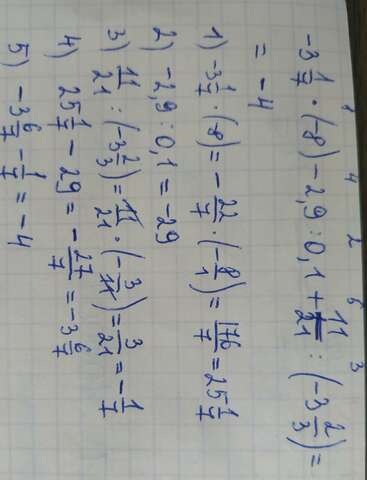 1 4 2 6 3
-3 1/7 · (-8) - 2,9 : 0,1 + 11/21 : (-3 2/3) =
= -4
1) -3 1/7 · (-8) = - 22/7 · (- 8/1) = 176/7 = 25 1/7
2) -2,9 : 0,1 = -29
3) 11/21 : (-3 2/3) = 11/21 · (- 3/11) = 3/21 = - 1/7
4) 25 1/7 - 29 = - 27/7 = -3 6/7
5) -3 6/7 - 1/7 = -4